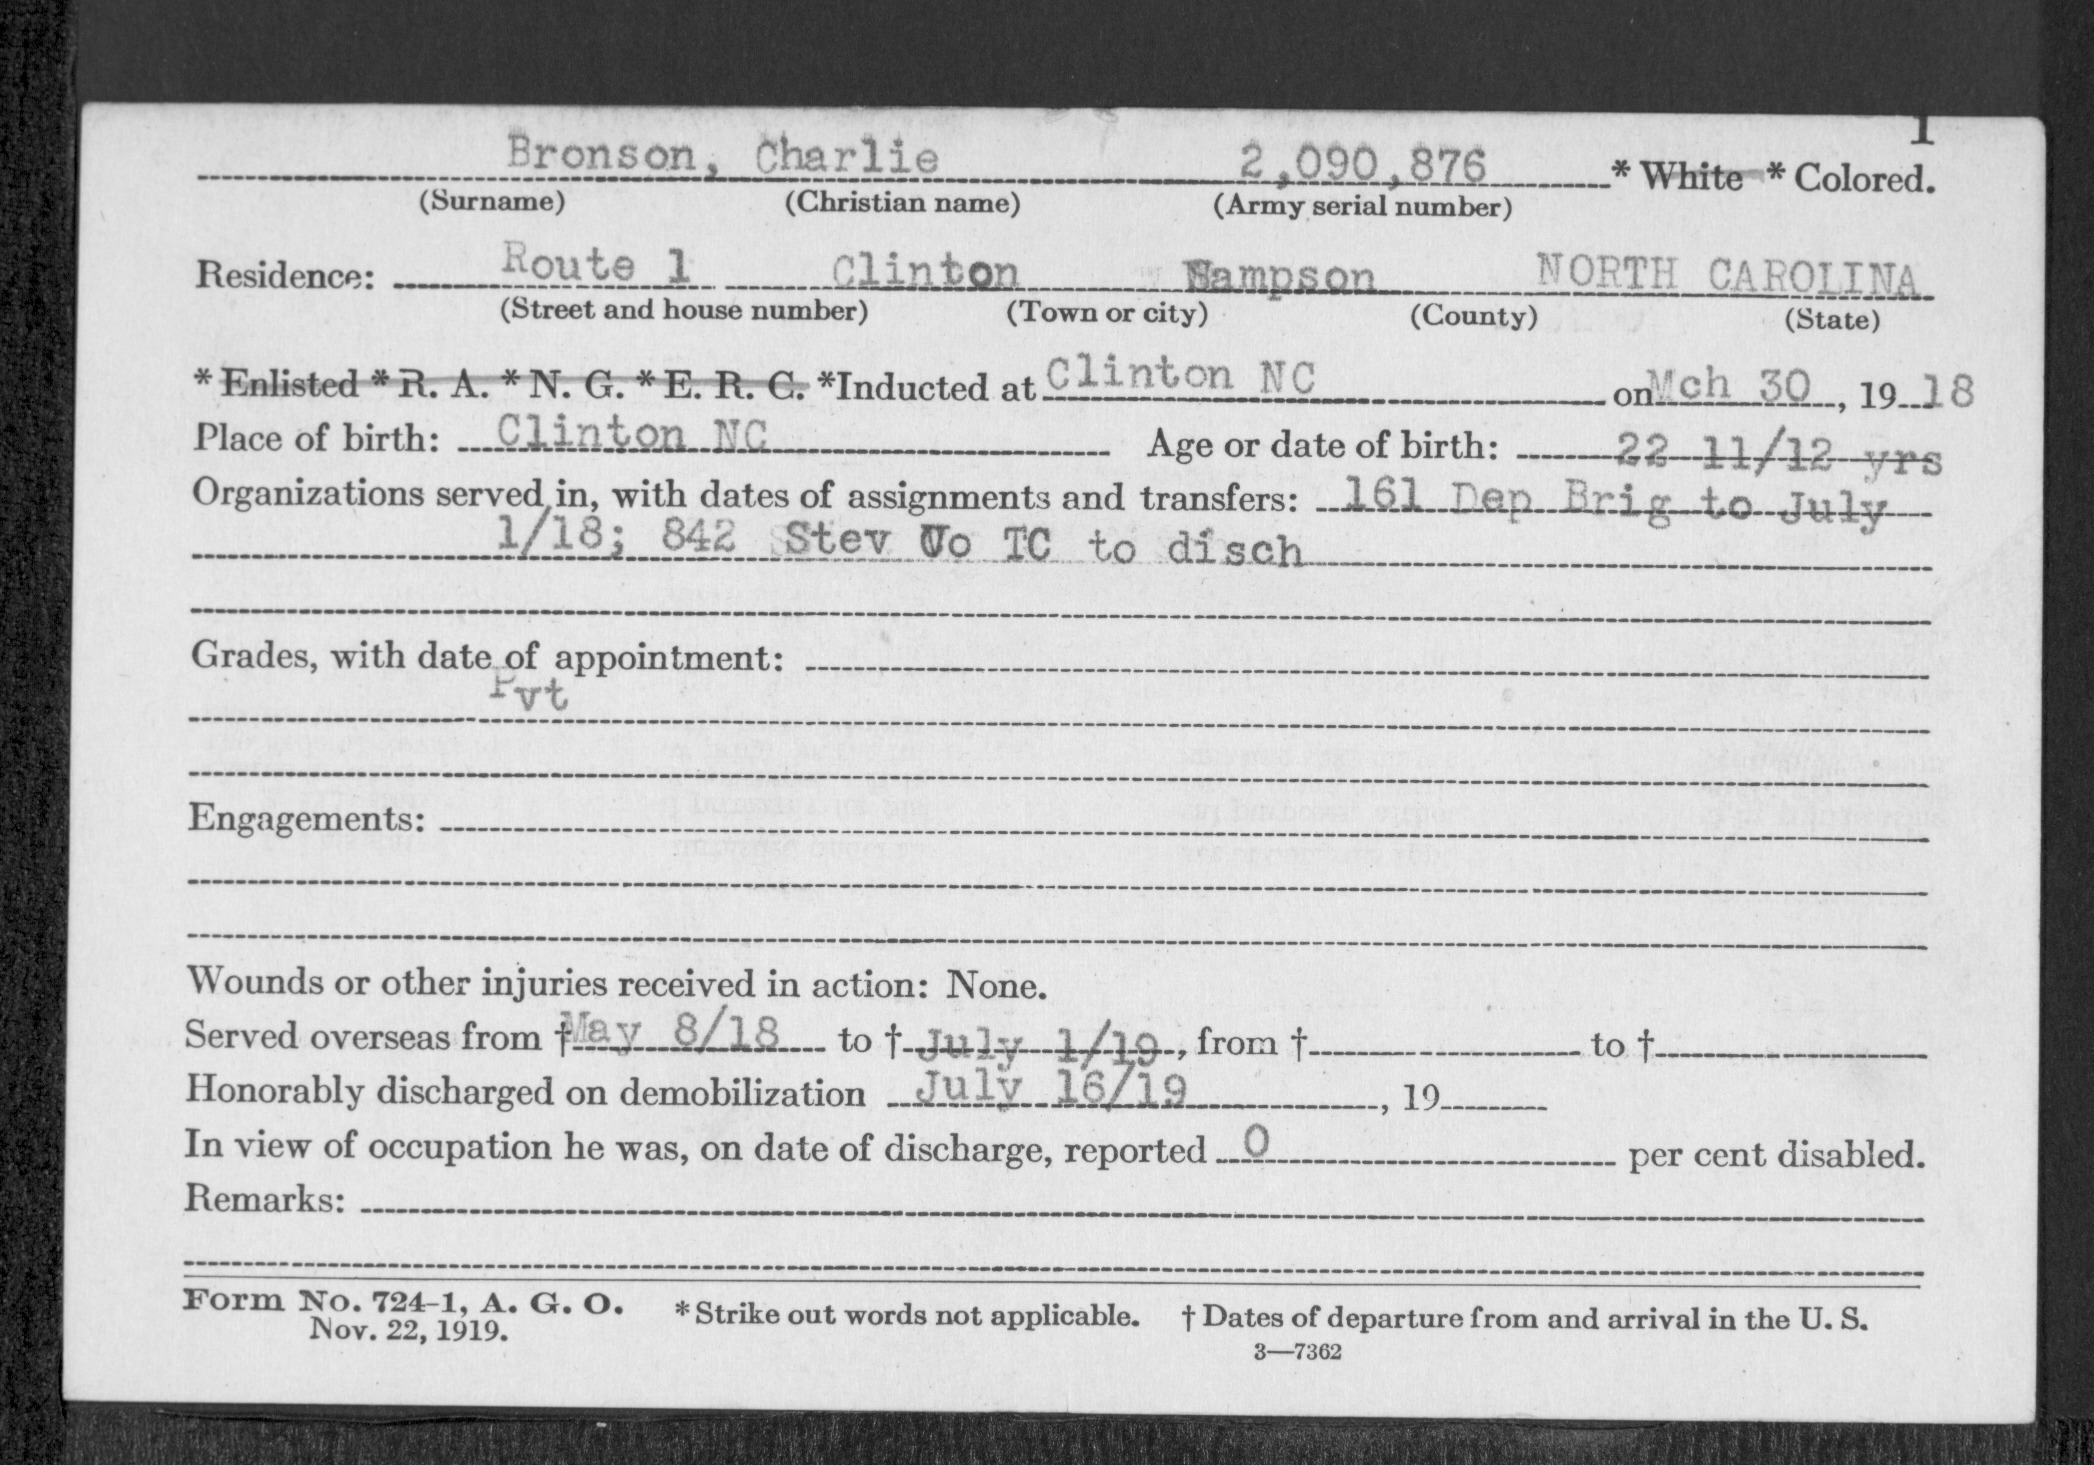 1
Bronson, Charlie 2,090,876 * White * Colored.
(Surname) (Christian name) (Army serial number)
Residence: Route 1 Clinton Sampson NORTH CAROLINA
(Street and house number) (Town or city) (County) (State)
* Enlisted * R. A. * N. G. * E. R. C. *Inducted at Clinton NC on Mch 30, 1918
Place of birth: Clinton NC Age or date of birth: 22 11/12 yrs
Organizations served in, with dates of assignments and transfers: 161 Dep Brig to July
1/18; 842 Stev Co TC to disch
Grades, with date of appointment:
Pvt
Engagements:
Wounds or other injuries received in action: None.
Served overseas from † May 8/18 to † July 1/19, from † to †
Honorably discharged on demobilization July 16/19, 19
In view of occupation he was, on date of discharge, reported 0 per cent disabled.
Remarks:
Form No. 724-1, A. G. O. * Strike out words not applicable. † Dates of departure from and arrival in the U. S.
Nov. 22, 1919.
3—7362